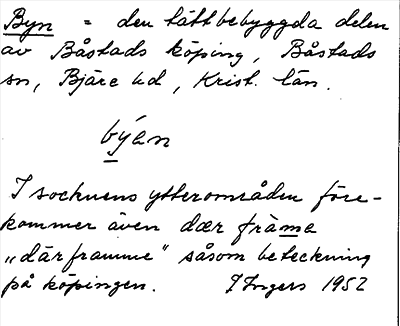 Byn = den tättbebyggda delen
av Båstads köping, Båstads
sn, Bjäre hd, Krist. län.
býen
I socknens ytterområden före-
kommer även dær fràme
„där framme" såsom beteckning
på köpingen. I Ingers 1952